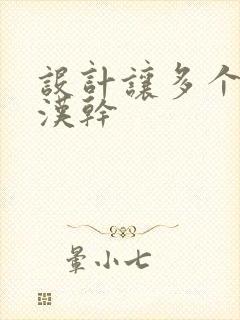 設計讓多个
漢幹
暈小七